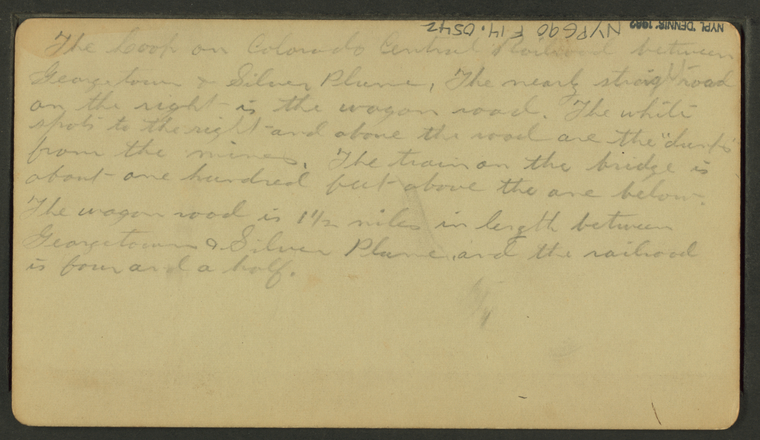 NYPG90 F14.0542
NYPL DENNIS 1982
The Loop on Colorado Central Railroad between
Georgetown & Silver Plume, The nearly straight road
on the right is the wagon road. The white
spots to the right and above the road are the "dumps"
from the mines. The train on the bridge is
about one hundred feet above the one below.
The wagon road is 1 1/2 miles in length between
Georgetown & Silver Plume, and the railroad
is four and a half.